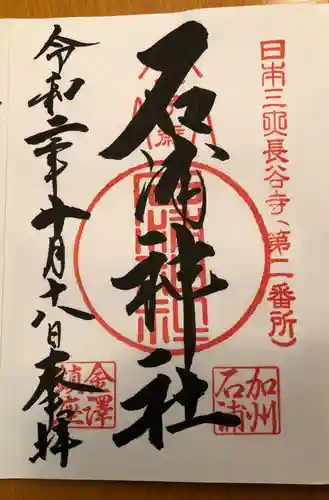 日本三所長谷寺、第二番所
石浦神社
加州
石浦
令和二年十月十八日奉拝
金澤